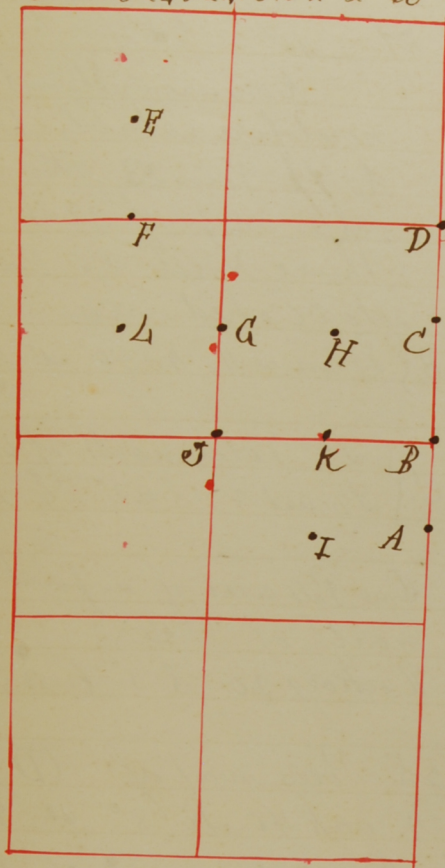 E
F D
L G H C
J K B
I A